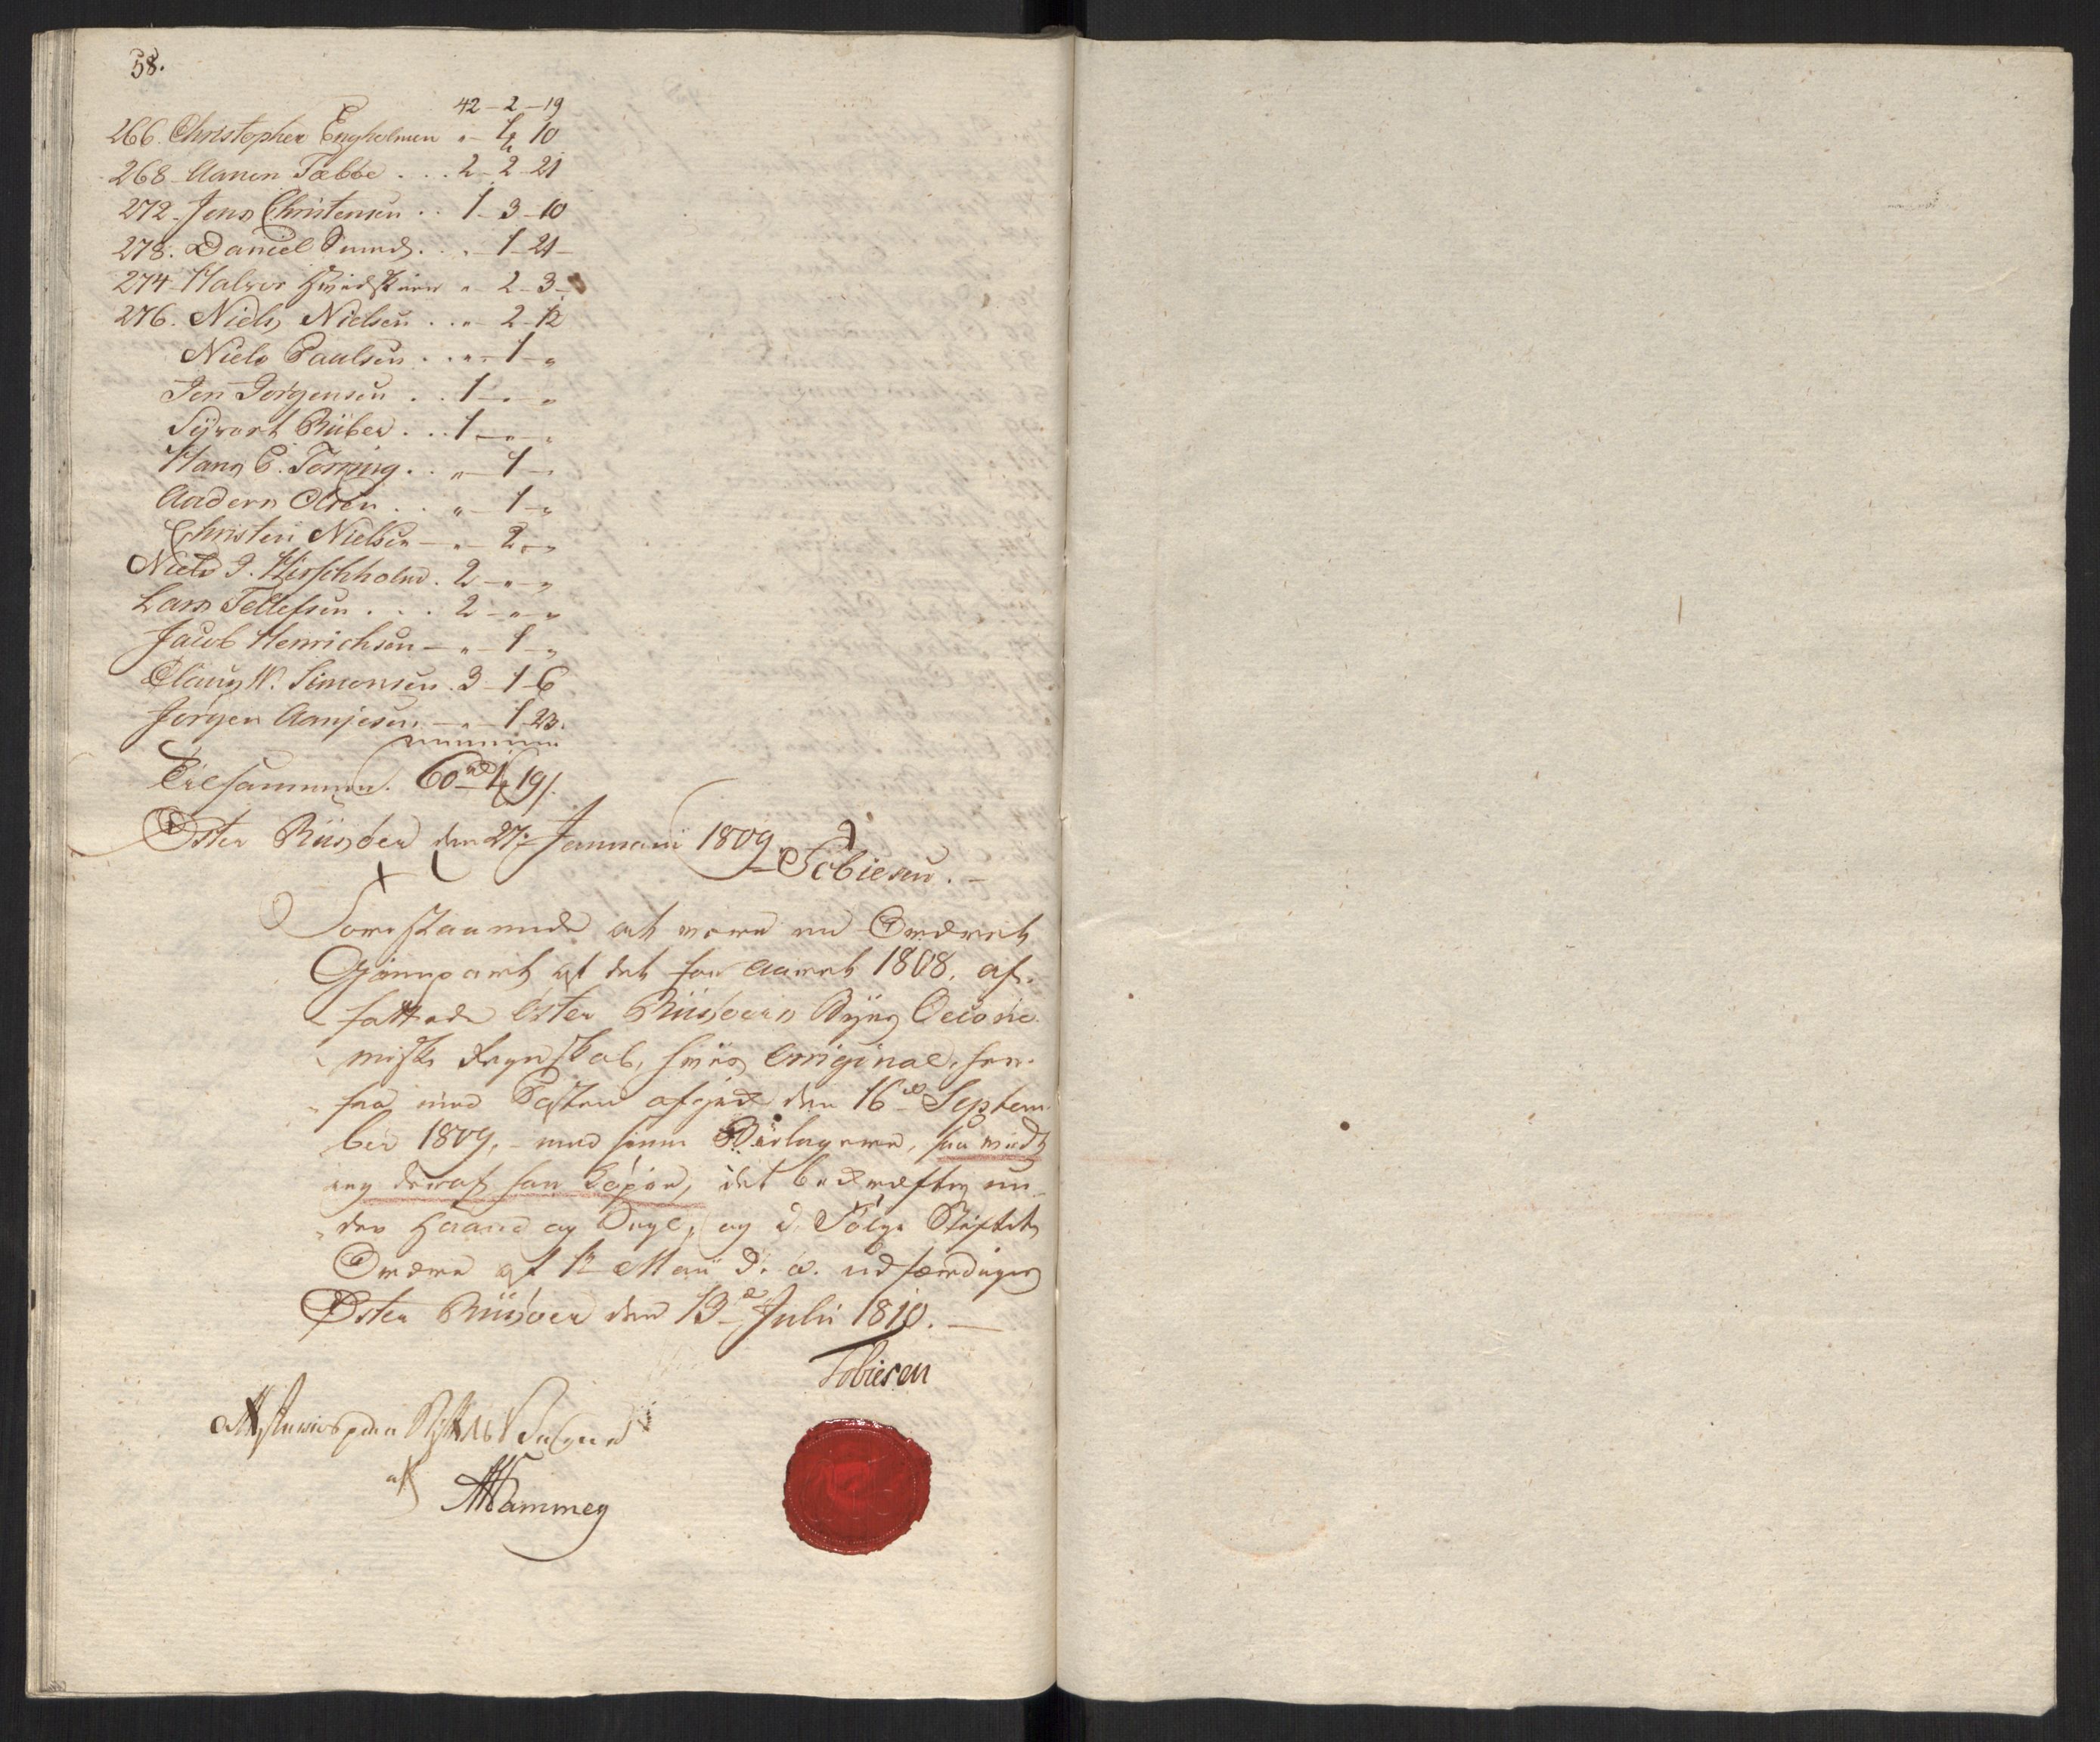 58.
42 - 2 - 19
266. Christopher Engholmen " - 4 10
268 - Aanen Tæbbe . . . 2 - 2 - 21
272 - Jens Christensen . . 1 - 3 - 10
278. Daniel Smed . . . - 1 - 21 -
274 - Halvor Hvidskiær " - 2 - 3 -
276. Niels Nielsen . . " - 2 - 12
Niels Paulsen . . " - 1 - "
Jon Jørgensen . . 1 - " - "
Syvert Riiber . . . 1 - " - "
Hans C. Torning . . " - 1 -
Aadern Olsen . . " - 1 - "
Christen Nielsen - " - 2 - "
Niels J. Hirschholm . 2 - " - "
Lars Tellefsen . . . 2 - " - "
Jacob Henrichsen - " - 1 - "
Claus W. Simonsen . 3 - 1 - 6
Jørgen Aanjesen - " - 1 - 23.
Tilsammen. 60 rd 4 19 s.
Øster Riisøer den 27 Januarii 1809
Tobiesen. -
Forestaaende at være en Ordret
Gienpart af det for Aaret 1808. af-
fattede Øster Riisøers Byes Oecono-
miske Regnskab, hvis Original her-
fra med Posten afgik den 16de Septem-
ber 1809, - med sine Bielagere, saa vidt
jeg deraf har Copier, det bekræftes un-
der Haand og Segl, og i Følge Stiftets
Ordre af 1te Maii d. a. udfærdiges
Øster Riisøer den 13de Julii 1810. -
Tobiesen
af